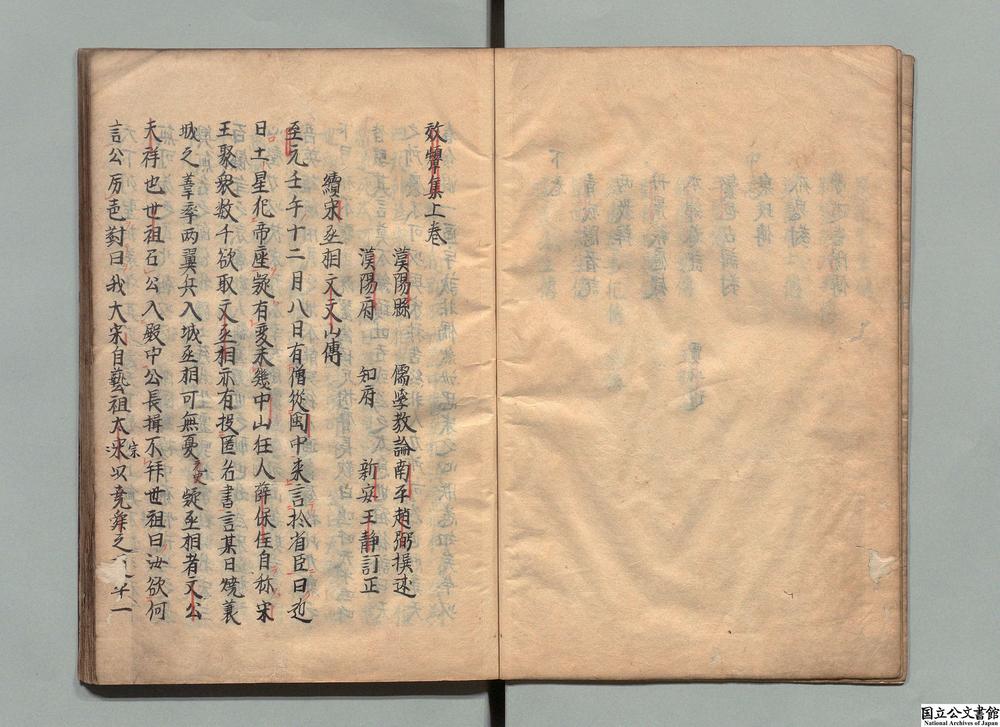 效顰集上卷
漢陽縣 儒學教諭南平趙弼撰述
漢陽府 知府 新安王靜訂正
續宋丞相文文山傳
至元壬午十二月八日有僧從閩中来言於省臣曰近
日土星犯帝座疑有変未幾中山狂人薛保住自称宋
王聚衆数千欲取文丞相亦有投匿名書言某日燒蓑
城之葦率两翼兵入城丞相可無憂更疑丞相者文公
天祥也世祖召公入殿中公長揖不拜世祖曰汝欲何
言公厉色對曰我大宋自藝祖太宗以堯舜之
国立公文書館
National Archives of Japan